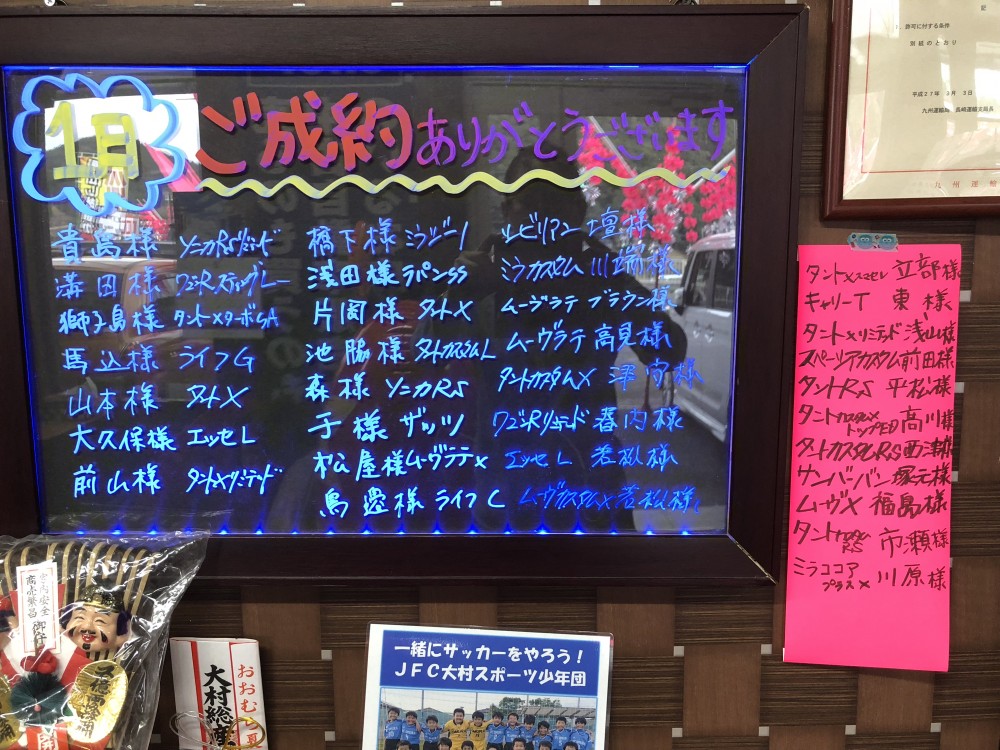 1月
ご成約ありがとうございます
貴島様 ソニカRSリミテッド
溝田様 ワゴンRスティングレー
獅子島様 タント×ターボSA
馬込様 ライフG
山本様 タントX
大久保様 エッセL
前山様 タントXリミテッド
橋下様 ミラジーノ
浅田様 ラパンSS
片岡様 タントX
池脇様 タントカスタムL
森様 ソニカRS
子様 ザッツ
松屋様 ムーヴラテX
鳥邊様 ライフC
壇様
ミラカスタム 川端様
ムーヴラテ ブラウン様
ムーヴラテ 高見様
タントカスタムX 津守様
ワゴンRリミテッド 春内様
エッセL 若松様
ムーヴカスタムX 若松様
タントX 立部様
キャリーT 東様
タントXリミテッド 浅山様
スペーシアカスタム 前田様
タントRS 平松様
タントカスタムX
トップED 高川様
タントカスタムRS 西津様
サンバーバン 塚元様
ムーヴX 福島様
タントカスタム
RS 市瀬様
ミラココア
プラスX 川原様
記
1．許可に付する条件
別紙のとおり
平成27年 3月 3日
九州運輸局 長崎運輸支局長
九州運輸
家内安全
商売繁昌
御守
開
おおむ
大村総
一緒にサッカーをやろう！
JFC大村スポーツ少年団